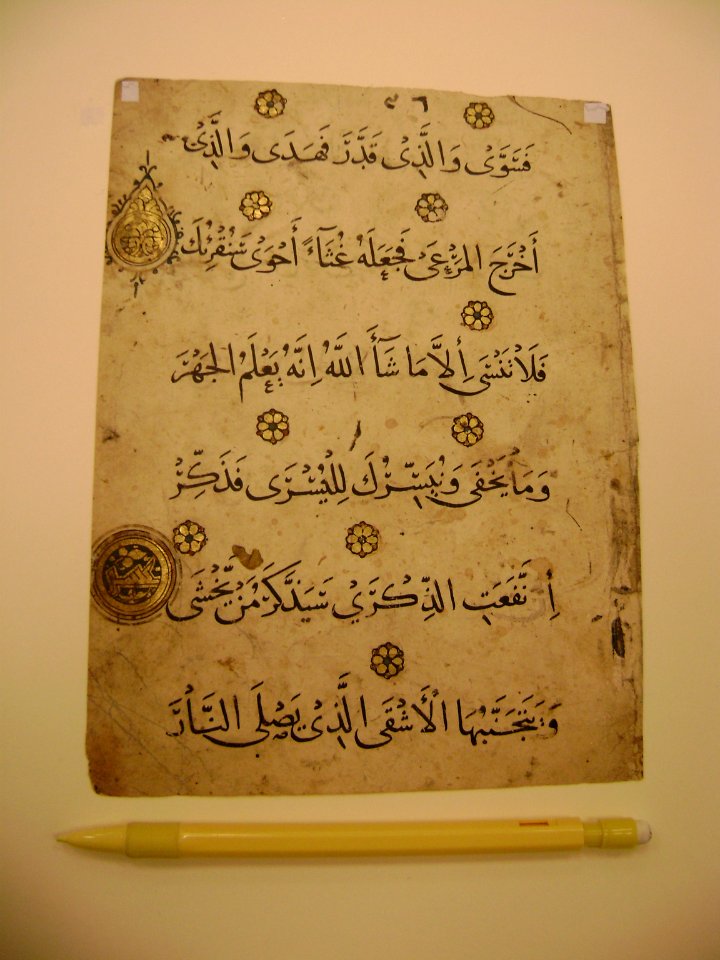 فَسَوَّىٰ وَالَّذِىْ قَدَّرَ فَهَدَى وَالَّذِىْ
أَخْرَجَ المَرْعَىٰ فَجَعَلَهُ غُثَآءً أَحْوَىٰ سَنُقْرِئُكَ
فَلَا تَنْسَى إِلَّا مَا شَآأَ اللَّهُ اِنَّهُ يَعْلَمُ الجَهْرَ
وَمَا يَخْفَى وَنُيَسِّرُكَ لِلْيُسْرَى فَذَكِّرْ
أِنْ نَّفَعَتِ الذِّكْرَيٰ سَيَذَّكَّرُ مَنْ يَّخْشَى
وَيَتَجَنَّبُهَا الْأَشْقَى الَّذِىْ يَصْلَى النَّارَ